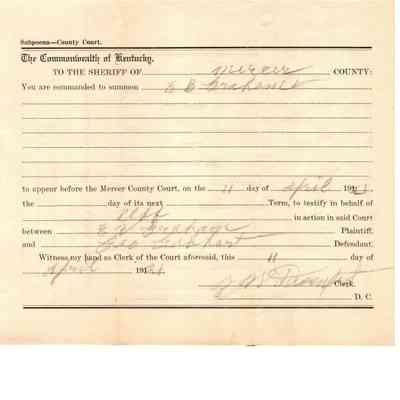 Subpoena—County Court.
The Commonwealth of Kentucky,
TO THE SHERIFF OF Mercer COUNTY:
You are commanded to summon E B
to appear before the Mercer County Court, on the 11 day of April 192
the day of its next Term, to testify in behalf of
Plff in action in said Court
between Plaintiff,
and Geo Defendant.
Witness my hand as Clerk of the Court aforesaid, this 11 day of
April 19
Clerk.
D. C.